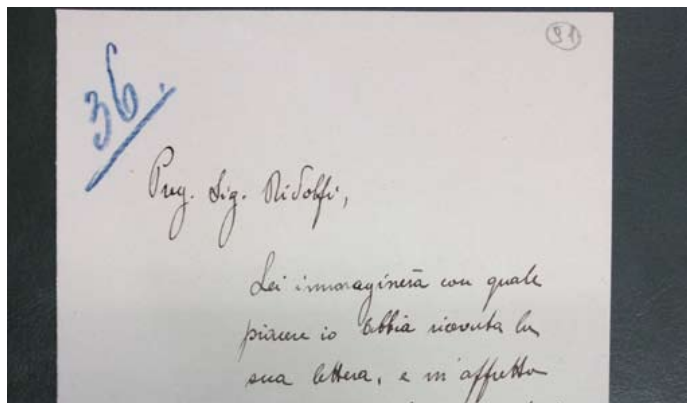 91
36.
Preg. Sig. Ridolfi,
Lei immaginerà con quale
piacere io abbia ricevuta la
sua lettera, e m'affretto